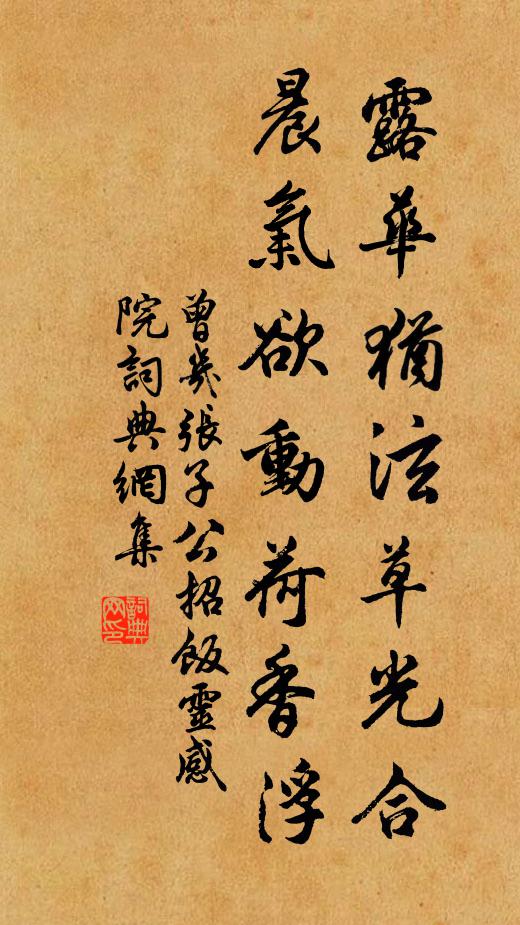 露華猶泫草光合
晨氣欲動荷香浮
曾幾張子公招飯靈感
院詞典網集
詞典网印